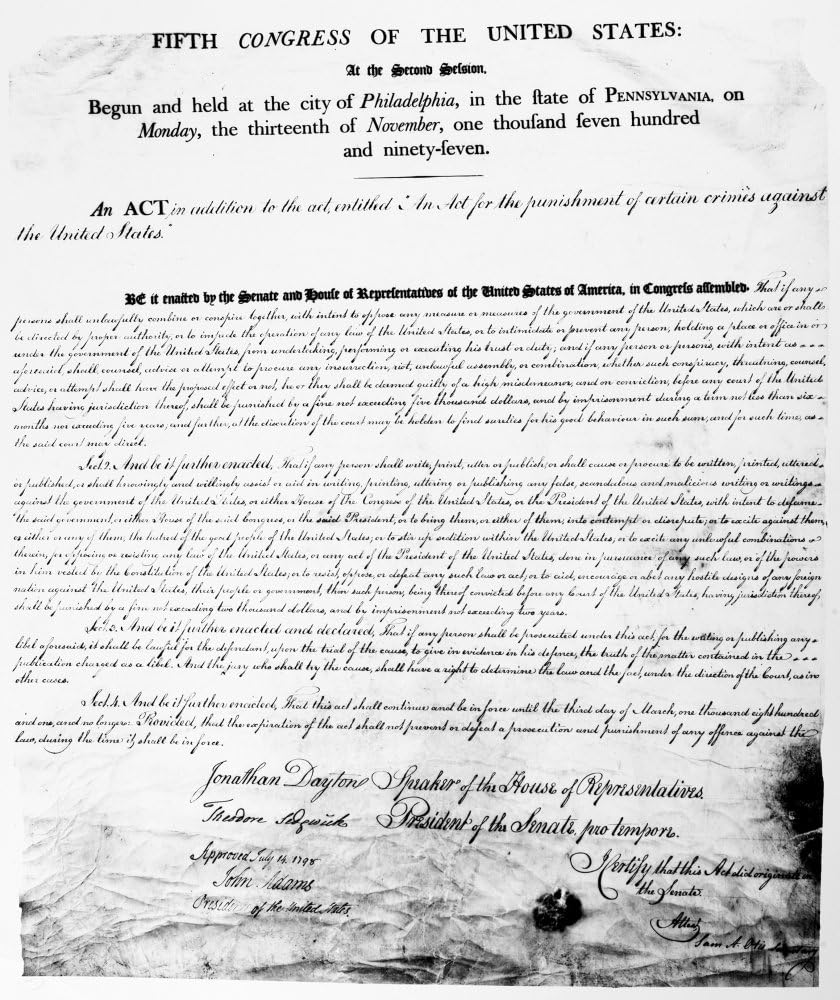 FIFTH CONGRESS OF THE UNITED STATES:
At the Second Seſſion,
Begun and held at the city of Philadelphia, in the ſtate of PENNSYLVANIA, on
Monday, the thirteenth of November, one thouſand ſeven hundred
and ninety-ſeven.
An ACT in addition to the act, entitled "An Act for the punishment of certain crimes against
the United States."
BE it enacted by the Senate and Houſe of Repreſentatives of the United States of America, in Congreſs aſſembled. That if any
persons shall unlawfully combine or conspire together, with intent to oppose any measure or measures of the government of the United States, which are or shall
be directed by proper authority, or to impede the operation of any law of the United States, or to intimidate or prevent any person, holding a place or office in or
under the government of the United States, from undertaking, performing or executing his trust or duty; and if any person or persons, with intent as
aforesaid, shall counsel, advise or attempt to procure any insurrection, riot, unlawful assembly, or combination, whether such conspiracy, threatning, counsel,
advice, or attempt shall have the proposed effect or not, he or they shall be deemed guilty of a high misdemeanor, and on conviction, before any court of the United
States having jurisdiction thereof, shall be punished by a fine not exceeding five thousand dollars, and by imprisonment during a term not less than six
months nor exceeding five years; and further, at the discretion of the court may be holden to find sureties for his good behaviour in such sum, and for such time, as
the said court may direct.
Sect. 2. And be it further enacted, That if any person shall write, print, utter or publish, or shall cause or procure to be written, printed, uttered
or published, or shall knowingly and willingly assist or aid in writing, printing, uttering or publishing any false, scandalous and malicious writing or writings
against the government of the United States, or either House of the Congress of the United States, or the President of the United States, with intent to defame
the said government, or either House of the said Congress, or the said President, or to bring them, or either of them, into contempt or disrepute; or to excite against them,
or either or any of them, the hatred of the good people of the United States, or to stir up sedition within the United States, or to excite any unlawful combinations
therein, for opposing or resisting any law of the United States, or any act of the President of the United States, done in pursuance of any such law, or of the powers
in him vested by the Constitution of the United States, or to resist, oppose, or defeat any such law or act, or to aid, encourage or abet any hostile designs of any foreign
nation against the United States, their people or government, then such person, being thereof convicted before any Court of the United States, having jurisdiction thereof,
shall be punished by a fine not exceeding two thousand dollars, and by imprisonment not exceeding two years.
Sect. 3. And be it further enacted and declared, That if any person shall be prosecuted under this act, for the writing or publishing any
libel aforesaid, it shall be lawful for the defendant, upon the trial of the cause, to give in evidence in his defence, the truth of the matter contained in the
publication charged as a libel. And the jury who shall try the cause, shall have a right to determine the law and the fact, under the direction of the Court, as in
other cases.
Sect. 4. And be it further enacted, That this act shall continue and be in force until the third day of March, one thousand eight hundred
and one, and no longer: Provided, that the expiration of the act shall not prevent or defeat a prosecution and punishment of any offence against the
law, during the time it shall be in force.
Jonathan Dayton Speaker of the House of Representatives.
Theodore Sedgwick President of the Senate, pro tempore.
Approved July 14. 1798
John Adams
President of the United States.
I Certify that this Act did originate in
the Senate.
Attest,
Sam A. Otis Secretary